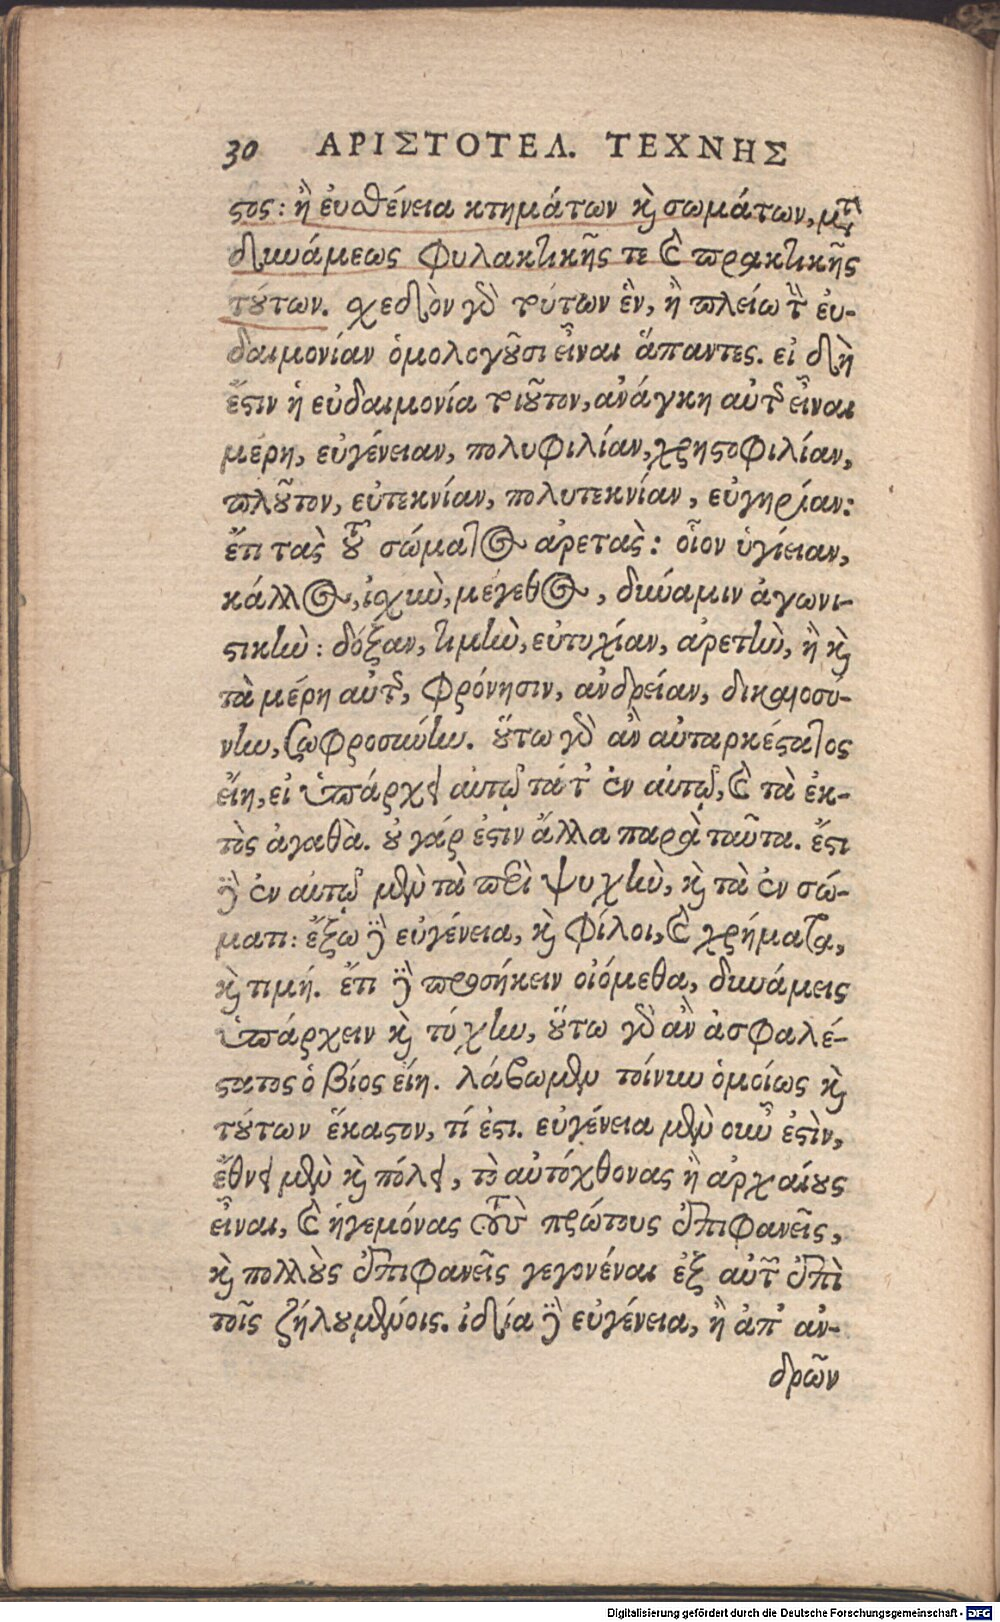 30 ΑΡΙΣΤΟΤΕΛ. ΤΕΧΝΗΣ
στος: ἢ εὐθένεια κτημάτων καὶ σωμάτων, μετὰ
δυνάμεως φυλακτικῆς τε καὶ πρακτικῆς
τούτων. σχεδὸν γὰρ τούτων ἓν, ἢ πλείω τὴν εὐ-
δαιμονίαν ὁμολογοῦσι εἶναι ἅπαντες. εἰ δὴ
ἔστιν ἡ εὐδαιμονία τοιοῦτον, ἀνάγκη αὐτῆς εἶναι
μέρη, εὐγένειαν, πολυφιλίαν, χρηστοφιλίαν,
πλοῦτον, εὐτεκνίαν, πολυτεκνίαν, εὐγηρίαν:
ἔτι τὰς τοῦ σώματος ἀρετὰς: οἷον ὑγίειαν,
κάλλος, ἰσχὺν, μέγεθος, δύναμιν ἀγωνι-
στικὴν: δόξαν, τιμὴν, εὐτυχίαν, ἀρετὴν, ἢ καὶ
τὰ μέρη αὐτῆς, φρόνησιν, ἀνδρείαν, δικαιοσύ-
νην, σωφροσύνην. οὕτω γὰρ ἂν αὐταρκέστατος
εἴη, εἰ ὑπάρχει αὐτῷ τά τ' ἐν αὐτῷ, καὶ τὰ ἐκ-
τὸς ἀγαθὰ. οὐ γάρ ἐστιν ἄλλα παρὰ ταῦτα. ἔστι
δὲ ἐν αὐτῷ μὲν τὰ περὶ ψυχὴν, καὶ τὰ ἐν σώ-
ματι: ἔξω δὲ εὐγένεια, καὶ φίλοι, καὶ χρήματα,
καὶ τιμή. ἔτι δὲ προσήκειν οἰόμεθα, δυνάμεις
ὑπάρχειν καὶ τύχην, οὕτω γὰρ ἂν ἀσφαλέ-
στατος ὁ βίος εἴη. λάβωμεν τοίνυν ὁμοίως καὶ
τούτων ἕκαστον, τί ἐστι. εὐγένεια μὲν οὖν ἐστὶν,
ἔθνει μὲν καὶ πόλει, τὸ αὐτόχθονας ἢ ἀρχαίους
εἶναι, καὶ ἡγεμόνας τοὺς πρώτους ἐπιφανεῖς,
καὶ πολλοὺς ἐπιφανεῖς γεγονέναι ἐξ αὐτῶν ἐπὶ
τοῖς ζηλουμένοις. ἰδία δὲ εὐγένεια, ἢ ἀπ' ἀν-
δρῶν
Digitalisierung gefördert durch die Deutsche Forschungsgemeinschaft - DFG